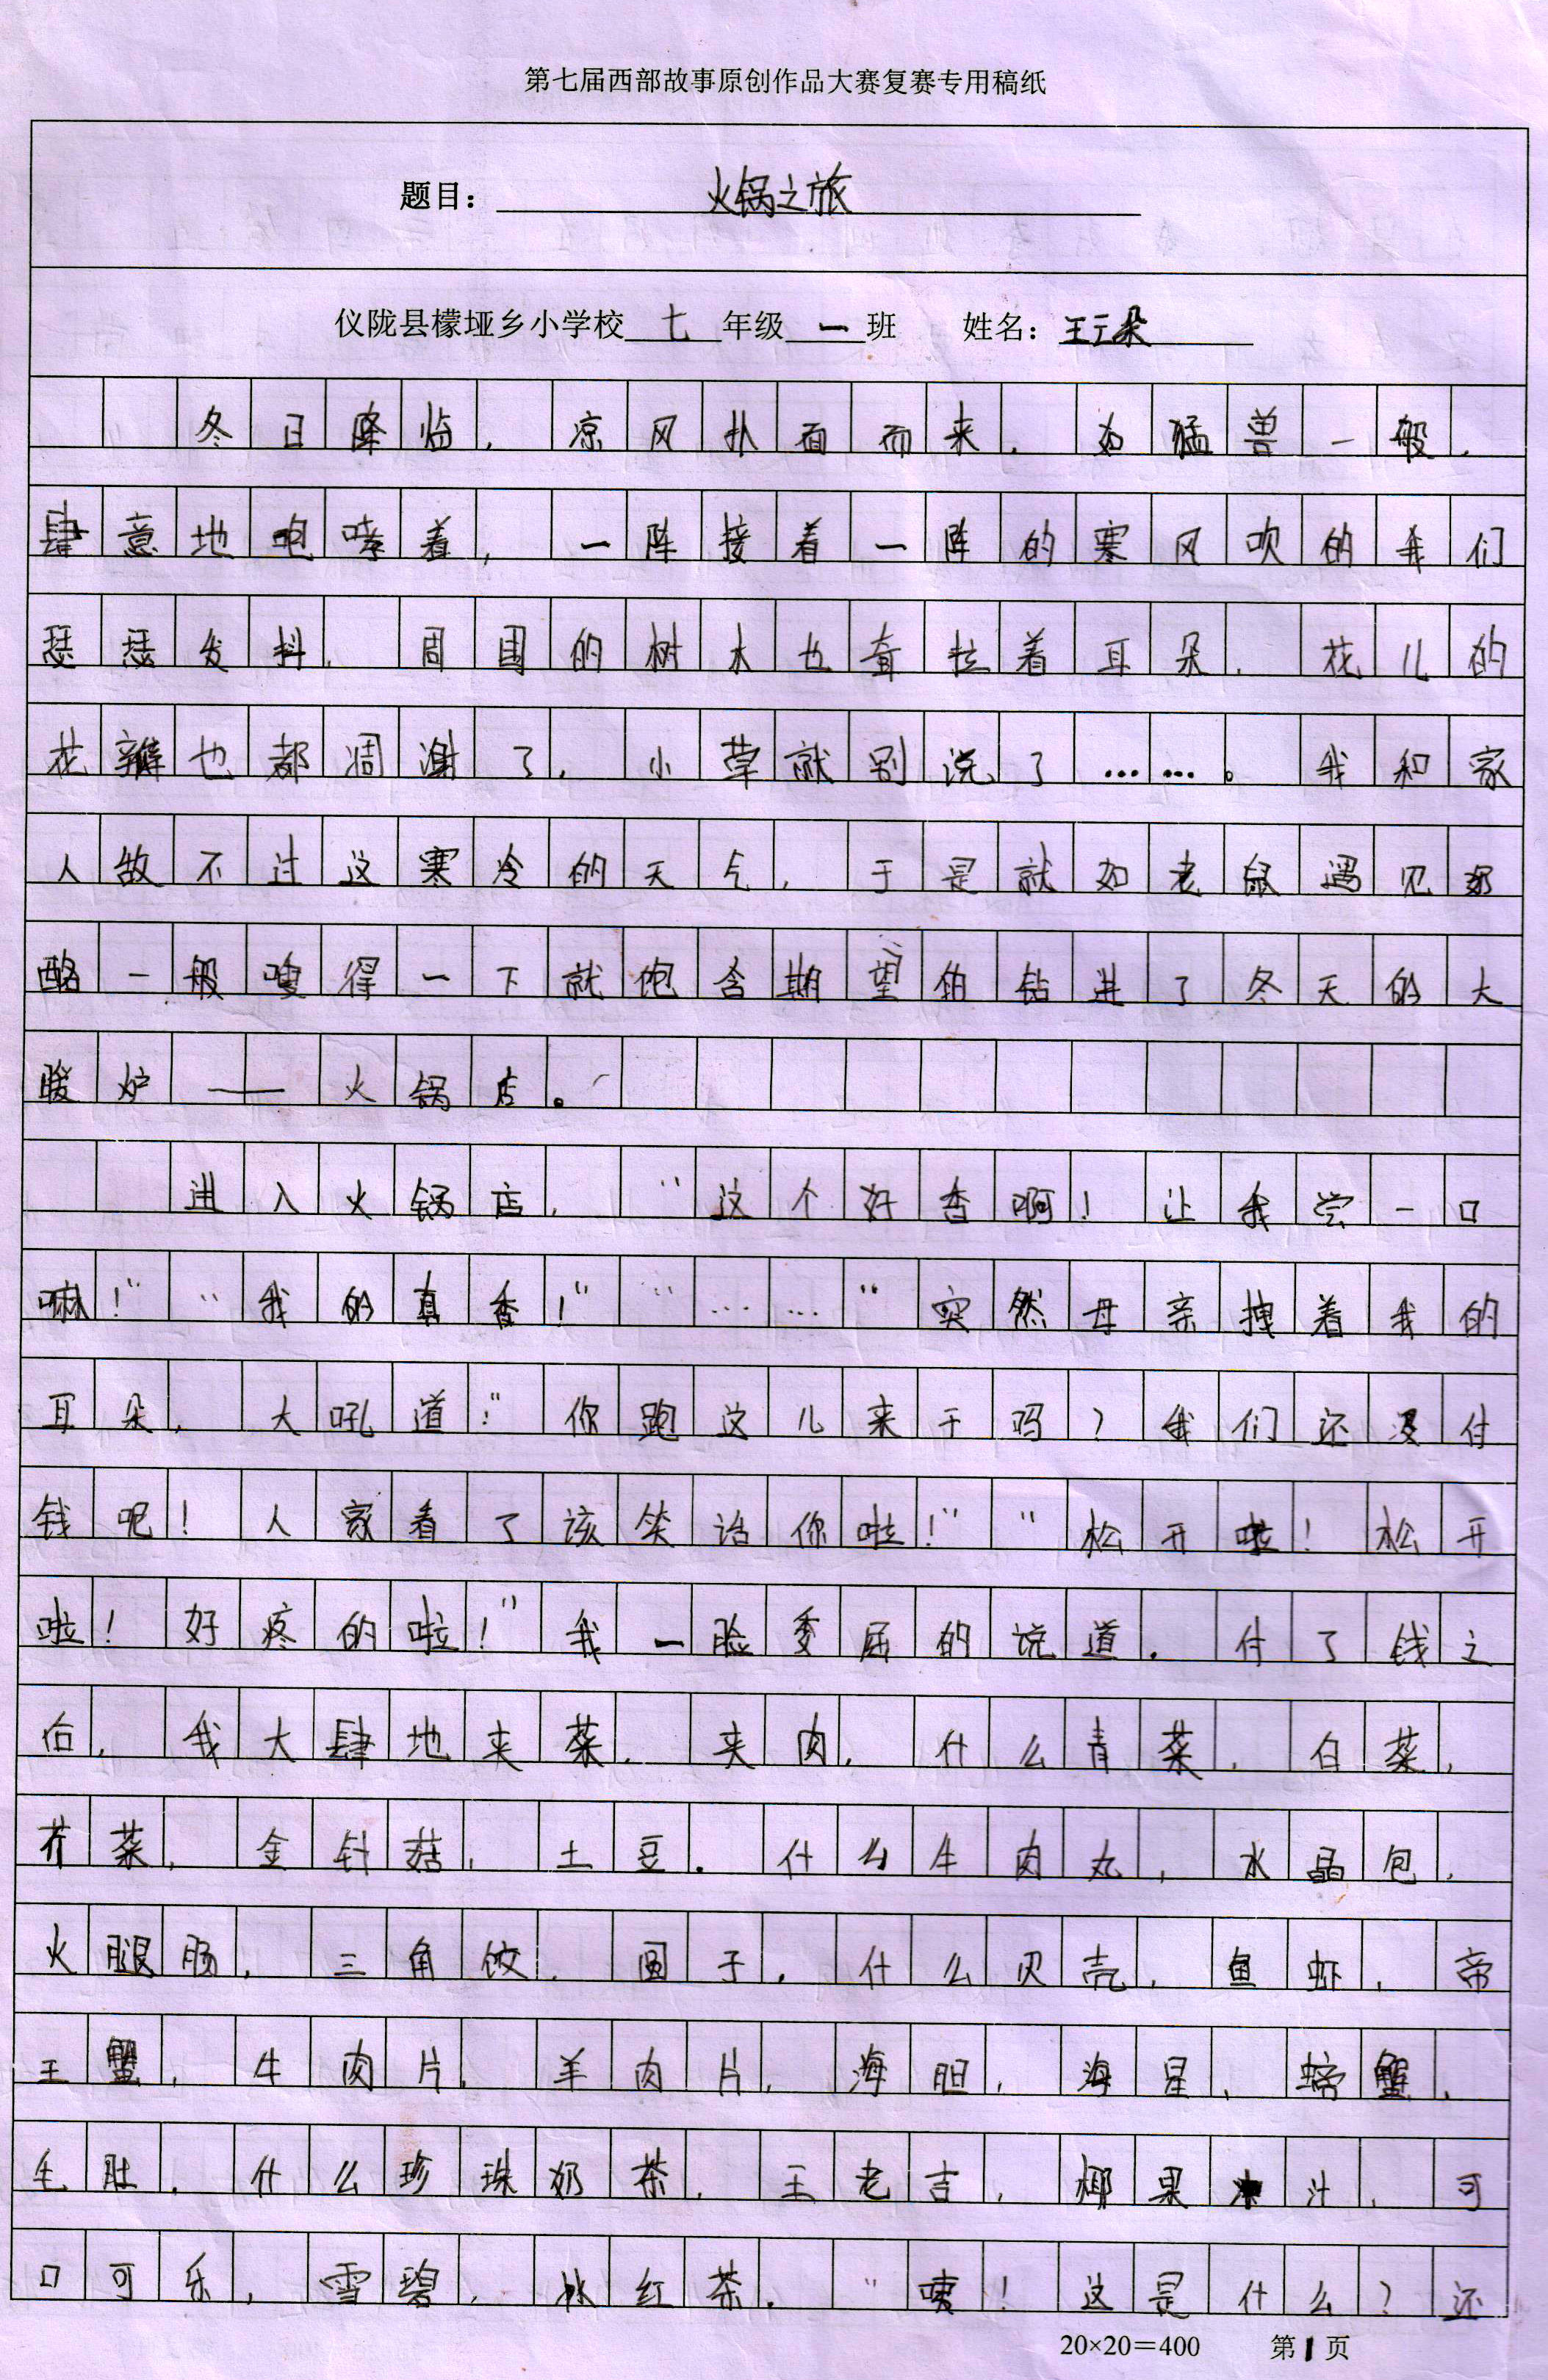 第七届西部故事原创作品大赛复赛专用稿纸
题目：火锅之旅
仪陇县檬垭乡小学校 七 年级 一 班 姓名：王云朵
冬日降临，凉风扑面而来，如猛兽一般，
肆意地咆哮着，一阵接着一阵的寒风吹的我们
瑟瑟发抖，周围的树木也耷拉着耳朵，花儿的
花瓣也都凋谢了，小草就别说了……。我和家
人敌不过这寒冷的天气，于是就如老鼠遇见奶
酪一般嗖得一下就饱含期望的钻进了冬天的大
暖炉——火锅店。
进入火锅店，“这个好香啊！让我尝一口
嘛！”“我的真香！”“……”突然母亲拽着我的
耳朵，大吼道：“你跑这儿来干吗？我们还没付
钱呢！人家看了该笑话你啦！”“松开啦！松开
啦！好疼的啦！”我一脸委屈的说道。付了钱之
后，我大肆地夹菜，夹肉，什么青菜，白菜，
芥菜，金针菇，土豆。什么牛肉丸，水晶包，
火腿肠，三角饺，圆子，什么贝壳，鱼虾，帝
王蟹，牛肉片，羊肉片，海胆，海星，螃蟹，
毛肚，什么珍珠奶茶，王老吉，椰果汁，可
口可乐，雪碧，冰红茶。“咦！这是什么？还
20×20=400 第1页